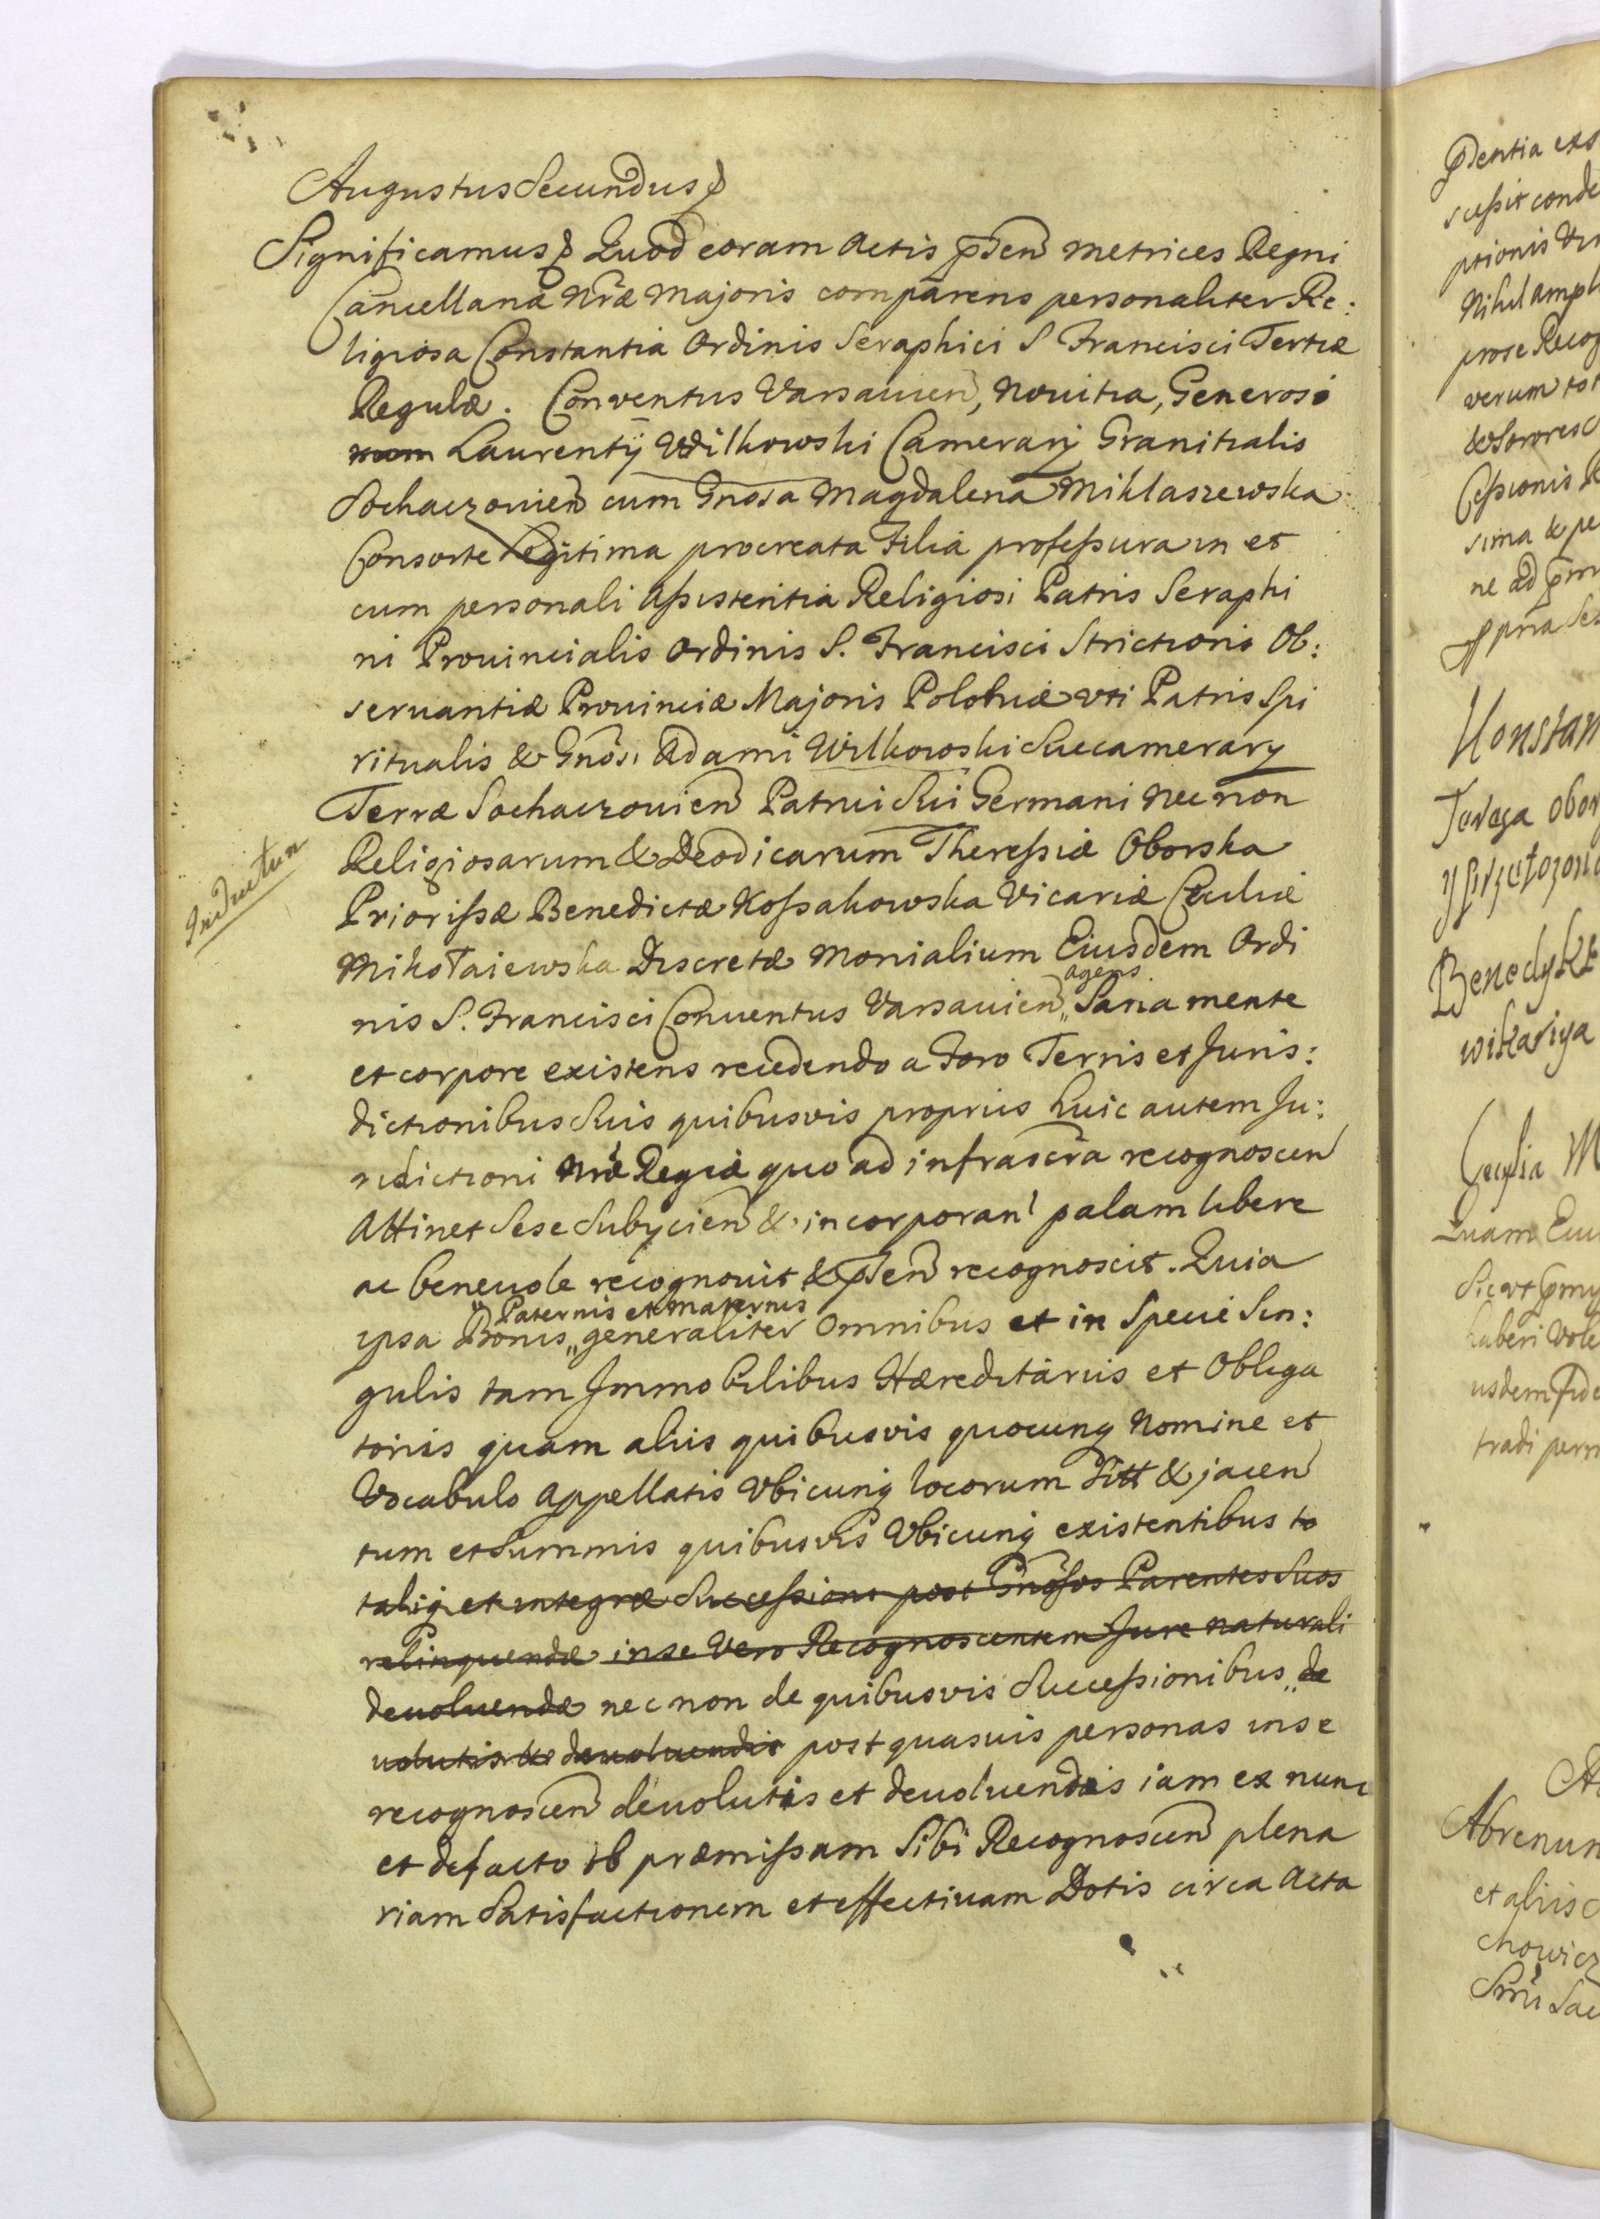 Augustus Secundus
Significamus Quod coram Actis pnsen Metrices Regni
Cancellariæ Nræ Majoris comparens personaliter Re:
ligiosa Constantia Ordinis Seraphici S Francisci Tertiæ
Regulæ. Conventus Varsauien, Nouitia, Generosi
Laurentij Wilkowski Camerarij Granitialis
Sochaczouien cum Gnosa Magdalena Miklaszewska
Consorte Legitima procreata Filia professura in et
cum personali Assistentia Religiosi Patris Seraphi
ni Prouincialis Ordinis S. Francisci Strictioris Ob:
seruantiæ Prouinciæ Majoris Poloniæ uti Patris Spi
ritualis & Gnosi Adami Wilkowski Succamerarij
Terræ Sochaczouien Patrui Sui Germani nec non
Religiosarum & Deodicarum Theressiæ Oborska
Priorissæ Benedictæ Kossakowska Vicariæ Ceciliæ
Mikołaiewska Discretæ Monialium Eiusdem Ordi
agens
nis S. Francisci Conuentus Varsauien,, Sana mente
et corpore existens recedendo a Foro Terris et Juris:
dictionibus Suis quibusvis proprius huic autem Ju:
risdictioni Nræ Regiæ quo ad infrascra recognoscen
Attinet Sese Subijcien & incorporan palam libere
ac beneuole recognouit & pnsen recognoscit. Quia
Paternis et Maternis
ipsa Bonis,, generaliter Omnibus et in Specie Sin:
gulis tam Immobilibus Hæreditarijs et Obliga
torijs quam alijs quibusvis quocunq Nomine et
Vocabulo Appellatis Vbicunq locorum Sitt & jacen
tum et Summis quibusvis Vbicunq existentibus to
taliq et integræ Successioni post Gnosos Parentes Suos
relinquendæ in se Vero Recognoscentem Jure naturali
deuoluendæ nec non de quibusvis Successionibus,, de
uolutis & deuoluendis post quasuis personas in se
recognoscen deuolutis et deuoluendis iam ex nunc
et de facto ob præmissam Sibi Recognoscen plena
riam Satisfactionem et effectiuam Dotis circa Acta
Inductum
pnsentia exs
scessit conde
ptionis
Nihil ampli
prose Recog
verum tot
& Sorores
Cessionis
sima & pe
ne ad
Konstan
Teresa Obor
Benedykt
wikariya
Cecylia M
Quam Eiu
haberi Vole
usdem fide
tradi perm
Abrenun
et alijs
chowicz